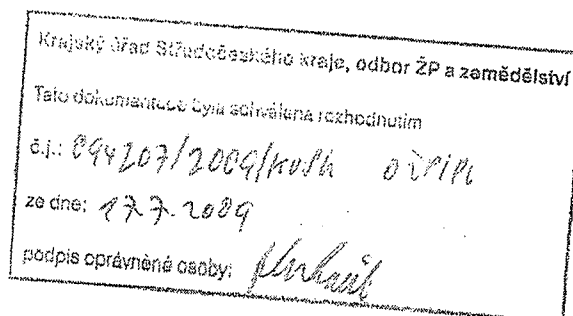 Krajský úřad Středočeského kraje, odbor ŽP a zemědělství
Tato dokumentace byla schválena rozhodnutím
č.j.: 094207/2009/KUSK
ze dne: 17.7.2009
podpis oprávněné osoby: